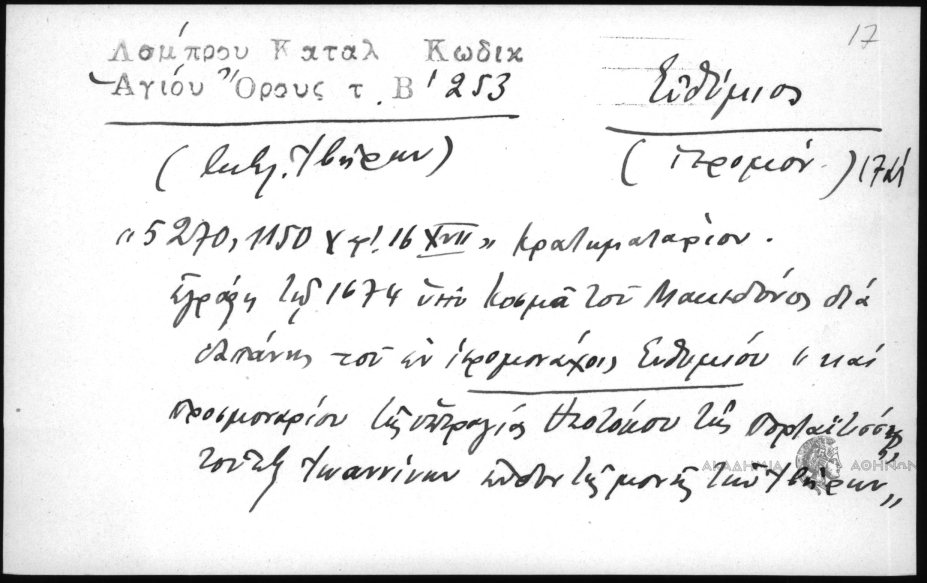 17
Λάμπρου Καταλ Κωδικ
Αγίου Ὄρους τ. Β' 253
Εὐθύμιος
Ἰβήρων)
(ἱερομόν.)
"5270, 1150 χφ! 16 XVII" Κρατηματάριον.
Ἐγράφη τῷ 1674 ὑπὸ Κοσμᾶ τοῦ Μακεδόνος διὰ
δαπάνης τοῦ ἐν ἱερομονάχοις Εὐθυμίου "καὶ
προσμοναρίου τῆς ὑπεραγίας Θεοτόκου τῆς Πορταϊτίσσης
τοῦ ἐξ Ἰωαννίνων τῆς μονῆς τῶν Ἰβήρων"
ΑΚΑΔΗΜΙΑ ΑΘΗΝΩΝ